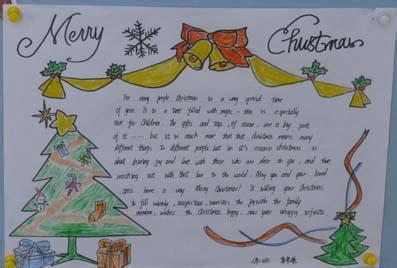 Merry Christmas
For many people Christmas is a very special time
of year. It is a time filled with magic - this is especially
true for Children. The gifts and toys, of course, are a big part
of it ...... but it is much more than that. Christmas means many
different things to different people but in it's essence christmas is
about sharing joy and love with those who are dear to you, and then
reaching out with that love to the world. May you and your loved
ones have a very Merry Christmas! Is willing your Christmas
to fill warmly, auspicious, the joy with the family
member, wishes the Christmas happy, new year happy